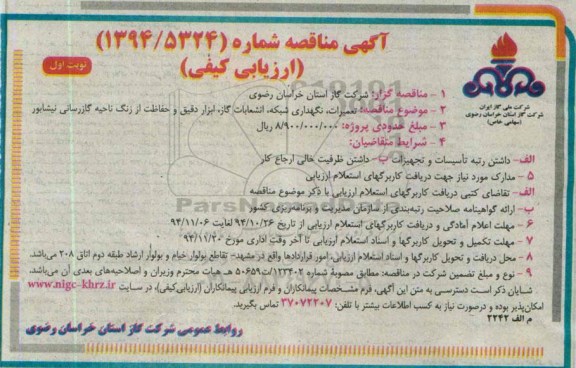 آگهی مناقصه شماره (۱۳۹۴/۵۳۲۴)
(ارزیابی کیفی)
نوبت اول
شرکت ملی گاز ایران
شرکت گاز استان خراسان رضوی
(سهامی خاص)
۱ - مناقصه گزار: شرکت گاز استان خراسان رضوی
۲ - موضوع مناقصه: تعمیرات، نگهداری شبکه، انشعابات گاز، ابزار دقیق و حفاظت از زنگ ناحیه گازرسانی نیشابور
۳ - مبلغ حدودی پروژه: ۸/۹۰۰/۰۰۰/۰۰۰ ریال
۴ - شرایط متقاضیان:
الف- داشتن رتبه تأسیسات و تجهیزات ب- داشتن ظرفیت خالی ارجاع کار
۵ - مدارک مورد نیاز جهت دریافت کاربرگهای استعلام ارزیابی
الف- تقاضای کتبی دریافت کاربرگهای استعلام ارزیابی با ذکر موضوع مناقصه
ب- ارائه گواهینامه صلاحیت رتبه‌بندی از سازمان مدیریت و برنامه‌ریزی کشور
۶ - مهلت اعلام آمادگی و دریافت کاربرگهای استعلام ارزیابی از تاریخ ۹۴/۱۰/۲۶ لغایت ۹۴/۱۱/۰۶
۷ - مهلت تکمیل و تحویل کاربرگها و اسناد استعلام ارزیابی تا آخر وقت اداری مورخ ۹۴/۱۱/۲۰
۸ - محل دریافت و تحویل کاربرگها و اسناد استعلام ارزیابی، امور قراردادها واقع در مشهد- تقاطع بولوار خیام و بولوار ارشاد طبقه دوم اتاق ۲۰۸ می‌باشد.
۹ - نوع و مبلغ تضمین شرکت در مناقصه: مطابق مصوبه شماره ۱۲۳۴۰۲/ت۵۰۶۵۹ هـ هیات محترم وزیران و اصلاحیه‌های بعدی آن می‌باشد.
شایان ذکر است دسترسی به متن این آگهی، فرم مشخصات پیمانکاران و فرم ارزیابی پیمانکاران (ارزیابی‌کیفی)، در سایت www.nigc-khrz.ir
امکان‌پذیر بوده و درصورت نیاز به کسب اطلاعات بیشتر با تلفن: ۳۷۰۷۲۲۰۷ تماس بگیرید.
م الف ۲۲۴۲
روابط عمومی شرکت گاز استان خراسان رضوی